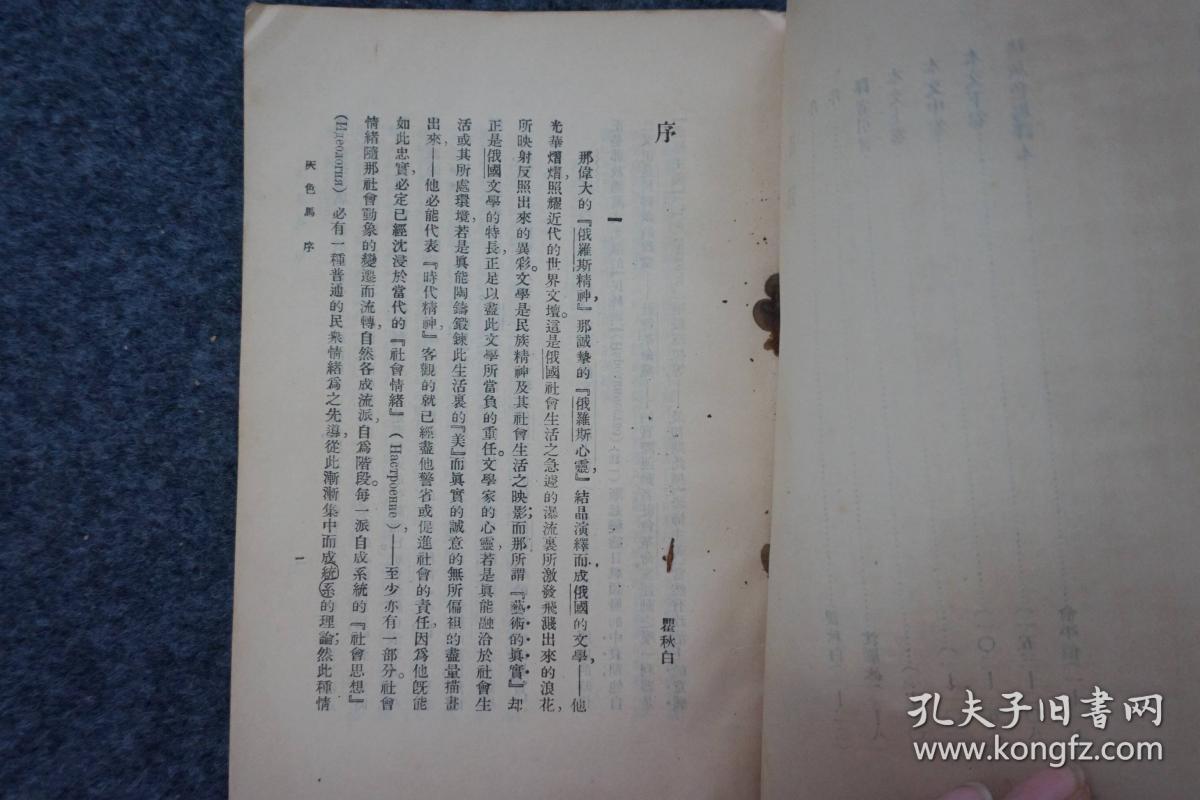 序
瞿秋白
一
那偉大的『俄羅斯精神』，那誠摯的『俄羅斯心靈』，結晶演繹而成俄國的文學——他
光華熠熠照耀近代的世界文壇。這是俄國社會生活之急遽的瀑流裏所激發飛濺出來的浪花，
所映射反照出來的異彩。文學是民族精神及其社會生活之映影；而那所謂『藝術的真實』却
正是俄國文學的特長，正足以盡此文學所當負的重任。文學家的心靈，若是真能融洽於社會生
活或其所處環境，若是真能陶鑄鍛鍊此生活裏的『美』而真實的誠意的無所偏袒的盡量描畫
出來——他必能代表『時代精神』，客觀的就已經盡他警省或促進社會的責任，因爲他既能
如此忠實，必定已經沈浸於當代的『社會情緒』（Настроение）——至少亦有一部分。社會
情緒隨那社會動象的變遷而流轉，自然各成流派，自爲階段。每一派自成系統的『社會思想』
（Идеология）必有一種普通的民衆情緒爲之先導，從此漸漸集中而成統系的理論；然此種情
灰色馬　序
一
瞿秋白
孔夫子旧书网
www.kongfz.com